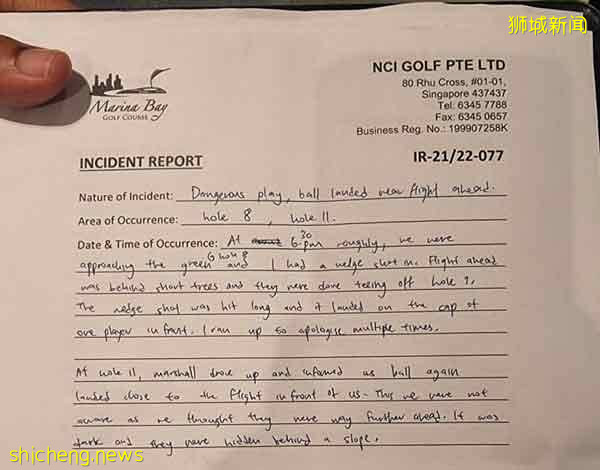 狮城新闻
NCI GOLF PTE LTD
80 Rhu Cross, #01-01,
Singapore 437437
Tel: 6345 7788
Fax: 6345 0657
Business Reg. No.: 199907258K
Marina Bay
GOLF COURSE
INCIDENT REPORT
IR-21/22-077
Nature of Incident: Dangerous play, ball landed near flight ahead.
Area of Occurrence: hole 8, hole 11.
Date & Time of Occurrence: At 6.30 pm roughly, we were
approaching the green @ hole 8 and I had a wedge shot in. Flight ahead
was behind short trees and they were done teeing off hole 9.
The wedge shot was hit long and it landed on the cap of
one player in front. I ran up so apologise multiple times.
At hole 11, marshall drove up and informed us ball again
landed close to the flight in front of us. This we were not
aware as we thought they were way further ahead. It was
dark and they were hidden behind a slope.
shicheng.news